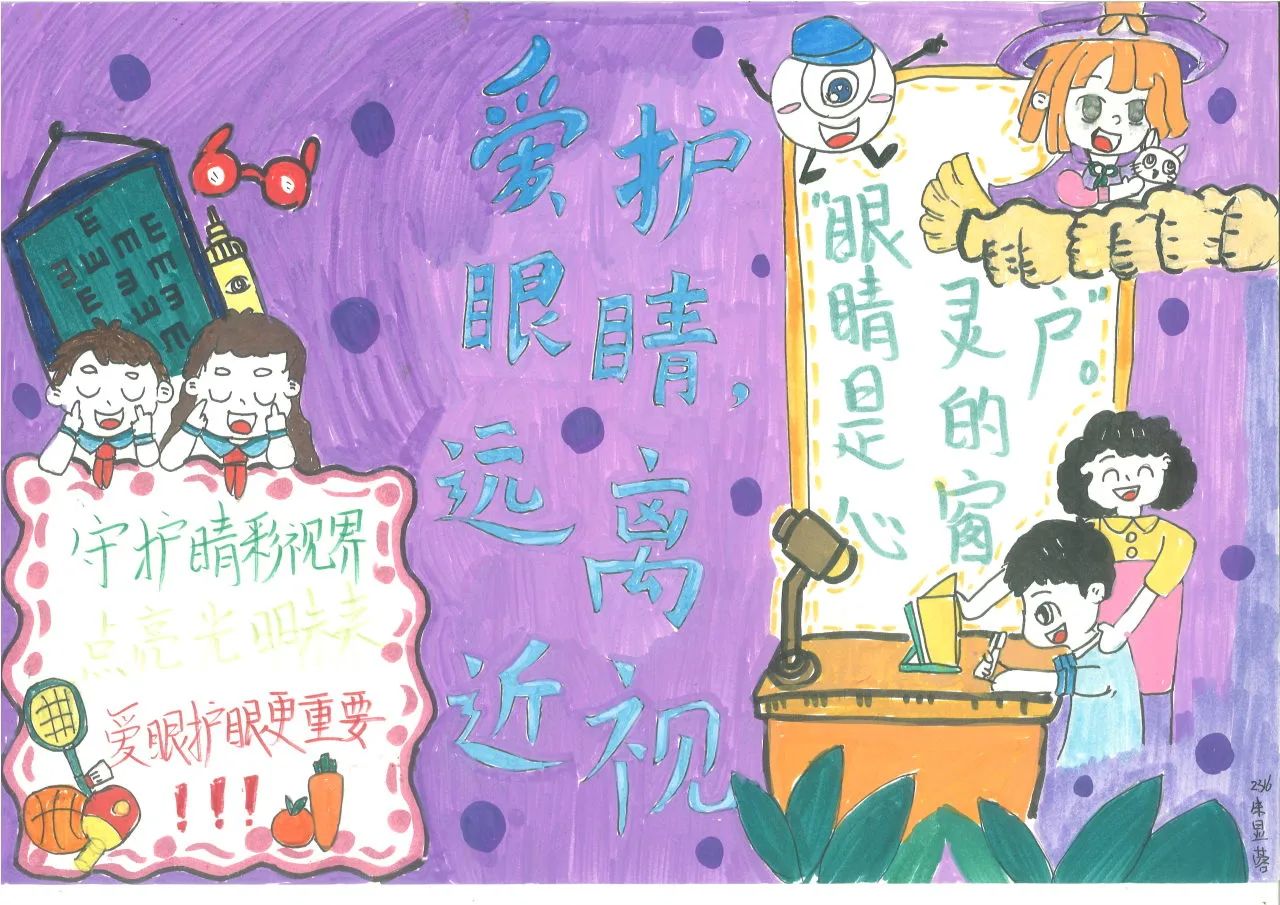 爱护
眼睛，
远离
近视
"眼睛是心
灵的窗
户"。
守护睛彩视界
点亮光明未来
爱眼护眼更重要
!!!